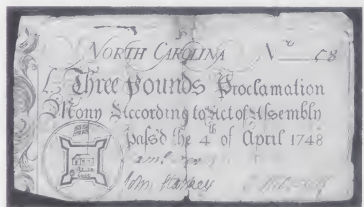 NORTH CAROLINA No C8
Three pounds Proclamation
Mony According to Act of Assembly
pass'd the 4th of April 1748
John Starkey